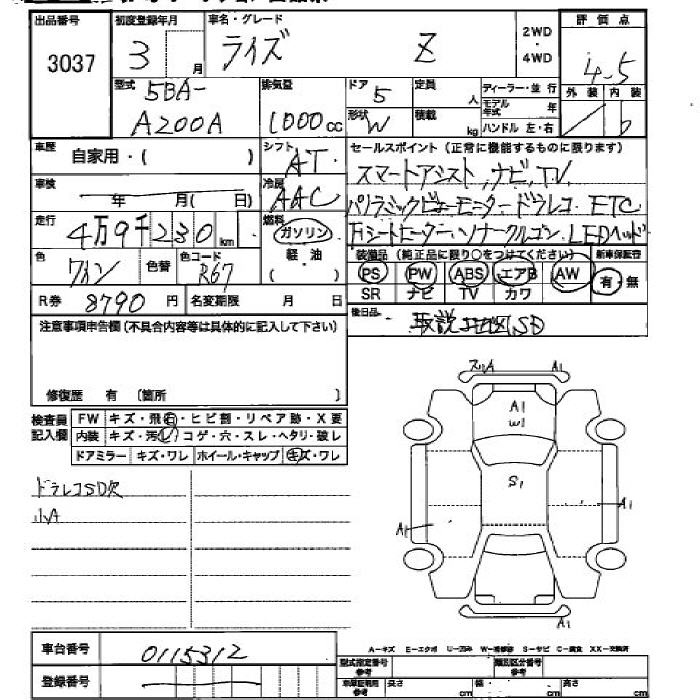 出品番号
3037
初度登録年月
3 月
車名・グレード
ライズ Z
2WD
・
4WD
評価点
4.5
外装 内装
型式
5BA-
A200A
排気量
1000cc
ドア
5
形状
W
定員
人
積載
kg
ディーラー・並行
モデル年式 年
ハンドル 左・右
車歴
自家用・( )
シフト
AT
セールスポイント (正常に機能するものに限ります)
スマートアシスト, ナビ, TV,
パノラミックビューモニター ドラレコ ETC
シートヒーター ソナー クルコン LEDヘッド
車検
年 月( 日)
冷房
AAC
走行
4万9千230km
燃料
ガソリン
軽油
( )
色
ワイン
色替
色コード
R67
装備品 (純正品に限り○をつけてください)
PS PW ABS エアB AW
SR ナビ TV カワ
新車保証書
有・無
R券 8790 円
名変期限 月 日
後日品
取説 SD
注意事項申告欄(不具合内容等は具体的に記入して下さい)
修復歴 有 [箇所 ]
検査員記入欄
FW キズ・飛石・ヒビ割・リペア跡・X要
内装 キズ・汚レ・コゲ・穴・スレ・ヘタリ・破レ
ドアミラー キズ・ワレ ホイール・キャップ キズ・ワレ
ドラレコSD欠
小A
スリA
A1
A1
W1
S1
A1
A1
A1
車台番号
0115312
登録番号
A-キズ E-エクボ U-凹み W-補修跡 S-サビ C-腐食 XX-交換済
型式指定番号
参考
類別区分番号
参考
車庫証明用
参考
長さ cm 幅 cm 高さ cm